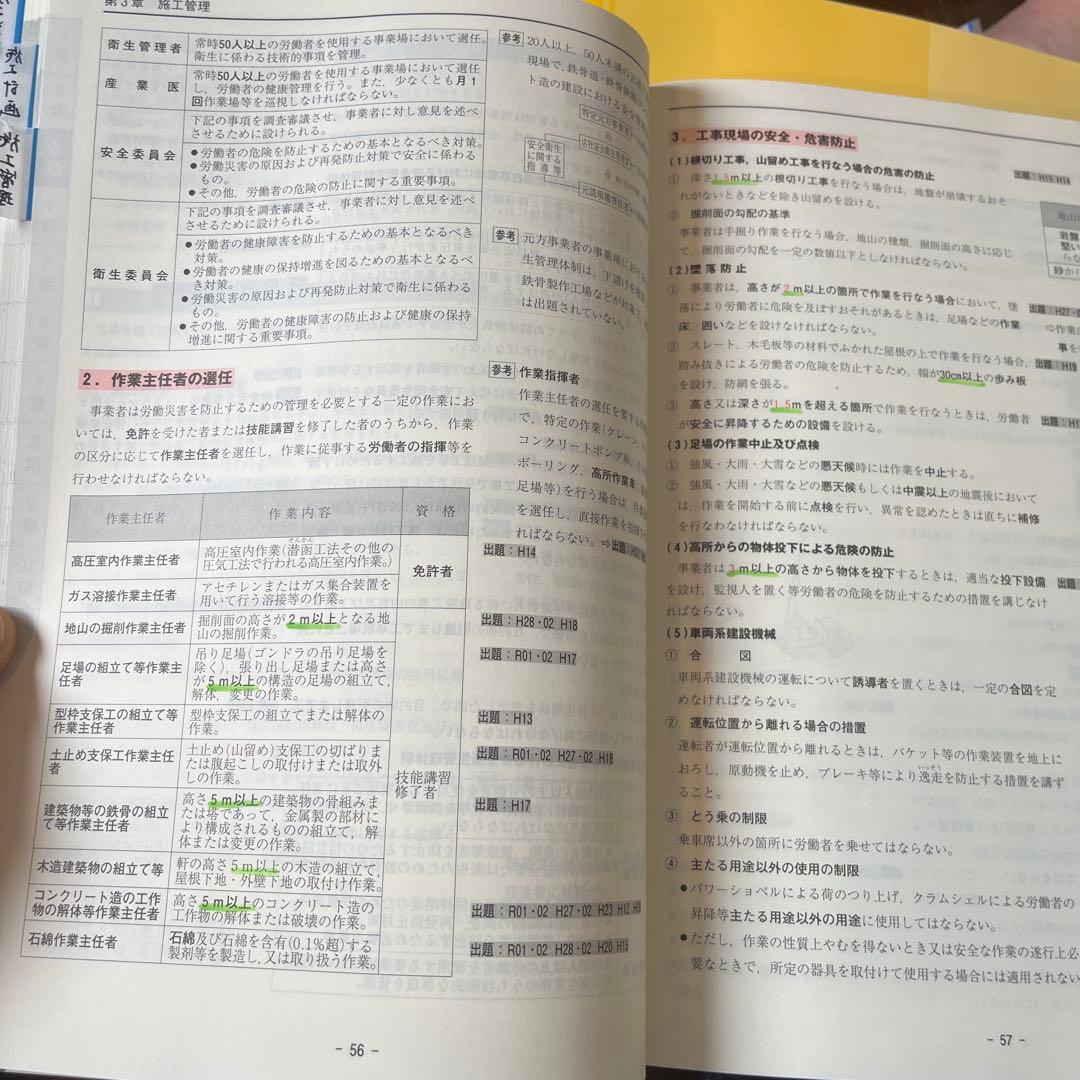 施工計画
第3章 施工管理
衛生管理者
常時50人以上の労働者を使用する事業場において選任。
衛生に係わる技術的事項を管理。
産業医
常時50人以上の労働者を使用する事業場において選任
し、労働者の健康管理を行う。また、少なくとも月1
回作業場等を巡視しなければならない。
安全委員会
下記の事項を調査審議させ、事業者に対し意見を述べ
させるために設けられる。
●労働者の危険を防止するための基本となるべき対策。
●労働災害の原因および再発防止対策で安全に係わる
もの。
●その他、労働者の危険の防止に関する重要事項。
衛生委員会
下記の事項を調査審議させ、事業者に対し意見を述べ
させるために設けられる。
●労働者の健康障害を防止するための基本となるべき
対策。
●労働者の健康の保持増進を図るための基本となるべ
き対策。
●労働災害の原因および再発防止対策で衛生に係わる
もの。
●その他、労働者の健康障害の防止および健康の保持
増進に関する重要事項。
参考 20人以上、50人未満の
現場で、鉄骨造・鉄骨鉄筋コン
ト造の建設における安全
特定元方事業者
店社安全衛生管理者
安全衛生
に関する
指導等
元請現場責任者
参考 元方事業者の事業場における
生管理体制は、下請けを使
鉄骨製作工場などが対象で、
は出題されていない。
2．作業主任者の選任
事業者は労働災害を防止するための管理を必要とする一定の作業にお
いては、免許を受けた者または技能講習を修了した者のうちから、作業
の区分に応じて作業主任者を選任し、作業に従事する労働者の指揮等を
行わせなければならない。
参考 作業指揮者
作業主任者の選任を要する
で、特定の作業(クレーン、
コンクリートポンプ車、
ボーリング、高所作業車、
足場等)を行う場合は、作業
を選任し、直接作業を指揮
ければならない。⇨出題：H21
作業主任者
作業内容
資格
高圧室内作業主任者
高圧室内作業(潜函工法その他の
せんかん
圧気工法で行われる高圧室内作業。)
免許者
出題：H14
ガス溶接作業主任者
アセチレンまたはガス集合装置を
用いて行う溶接等の作業。
地山の掘削作業主任者
掘削面の高さが2m以上となる地
山の掘削作業。
出題：H28・02 H18
足場の組立て等作業主
任者
吊り足場(ゴンドラの吊り足場を
除く)、張り出し足場または高さ
が5m以上の構造の足場の組立て、
解体、変更の作業。
出題：R01・02 H17
型枠支保工の組立て等
作業主任者
型枠支保工の組立てまたは解体の
作業。
出題：H13
土止め支保工作業主任
者
土止め(山留め)支保工の切ばりま
たは腹起こしの取付けまたは取外
しの作業。
技能講習
修了者
出題：R01・02 H27・02 H18
建築物等の鉄骨の組立
て等作業主任者
高さ5m以上の建築物の骨組みま
たは塔であって、金属製の部材に
より構成されるものの組立て、解
体または変更の作業。
出題：H17
木造建築物の組立て等
軒の高さ5m以上の木造の組立て、
屋根下地・外壁下地の取付け作業。
コンクリート造の工作
物の解体等作業主任者
高さ5m以上のコンクリート造の
工作物の解体または破壊の作業。
出題：R01・02 H27・02 H23 H12
石綿作業主任者
石綿及び石綿を含有(0.1%超)する
製剤等を製造し、又は取り扱う作業。
出題：R01・02 H28・02 H20 H15
- 56 -
3．工事現場の安全・危害防止
(1)根切り工事、山留め工事を行なう場合の危害の防止
出題：H15 H14
① 深さ1.5m以上の根切り工事を行なう場合は、地盤が崩壊するおそ
れがないときなどを除き山留めを設ける。
② 掘削面の勾配の基準
事業者は手掘り作業を行なう場合、地山の種類、掘削面の高さに応じ
て、掘削面の勾配を一定の数値以下としなければならない。
地山の
岩盤
堅い
らな
砂か
(2)墜落防止
① 事業者は、高さが2m以上の箇所で作業を行なう場合において、墜
落により労働者に危険を及ぼすおそれがあるときは、足場などの作業
床、囲いなどを設けなければならない。
出題：H27
⇨作
事を
② スレート、木毛板等の材料でふかれた屋根の上で作業を行なう場合、
踏み抜きによる労働者の危険を防止するため、幅が30cm以上の歩み板
を設け、防網を張る。
出題：H19
③ 高さ又は深さが1.5mを超える箇所で作業を行なうときは、労働者
が安全に昇降するための設備を設ける。
出題：H1
(3)足場の作業中止及び点検
① 強風・大雨・大雪などの悪天候時には作業を中止する。
② 強風・大雨・大雪などの悪天候もしくは中震以上の地震後において
は、作業を開始する前に点検を行い、異常を認めたときは直ちに補修
を行なわなければならない。
(4)高所からの物体投下による危険の防止
事業者は3m以上の高さから物体を投下するときは、適当な投下設備
を設け、監視人を置く等労働者の危険を防止するための措置を講じなけ
ればならない。
出題
(5)車両系建設機械
① 合図
車両系建設機械の運転について誘導者を置くときは、一定の合図を定
めなければならない。
② 運転位置から離れる場合の措置
運転者が運転位置から離れるときは、バケット等の作業装置を地上に
おろし、原動機を止め、ブレーキ等により逸走を防止する措置を講ず
いっそう
ること。
③ とう乗の制限
乗車席以外の箇所に労働者を乗せてはならない。
④ 主たる用途以外の使用の制限
●パワーショベルによる荷のつり上げ、クラムシェルによる労働者の
昇降等主たる用途以外の用途に使用してはならない。
●ただし、作業の性質上やむを得ないとき又は安全な作業の遂行上必
要なときで、所定の器具を取付けて使用する場合には適用されない
- 57 -